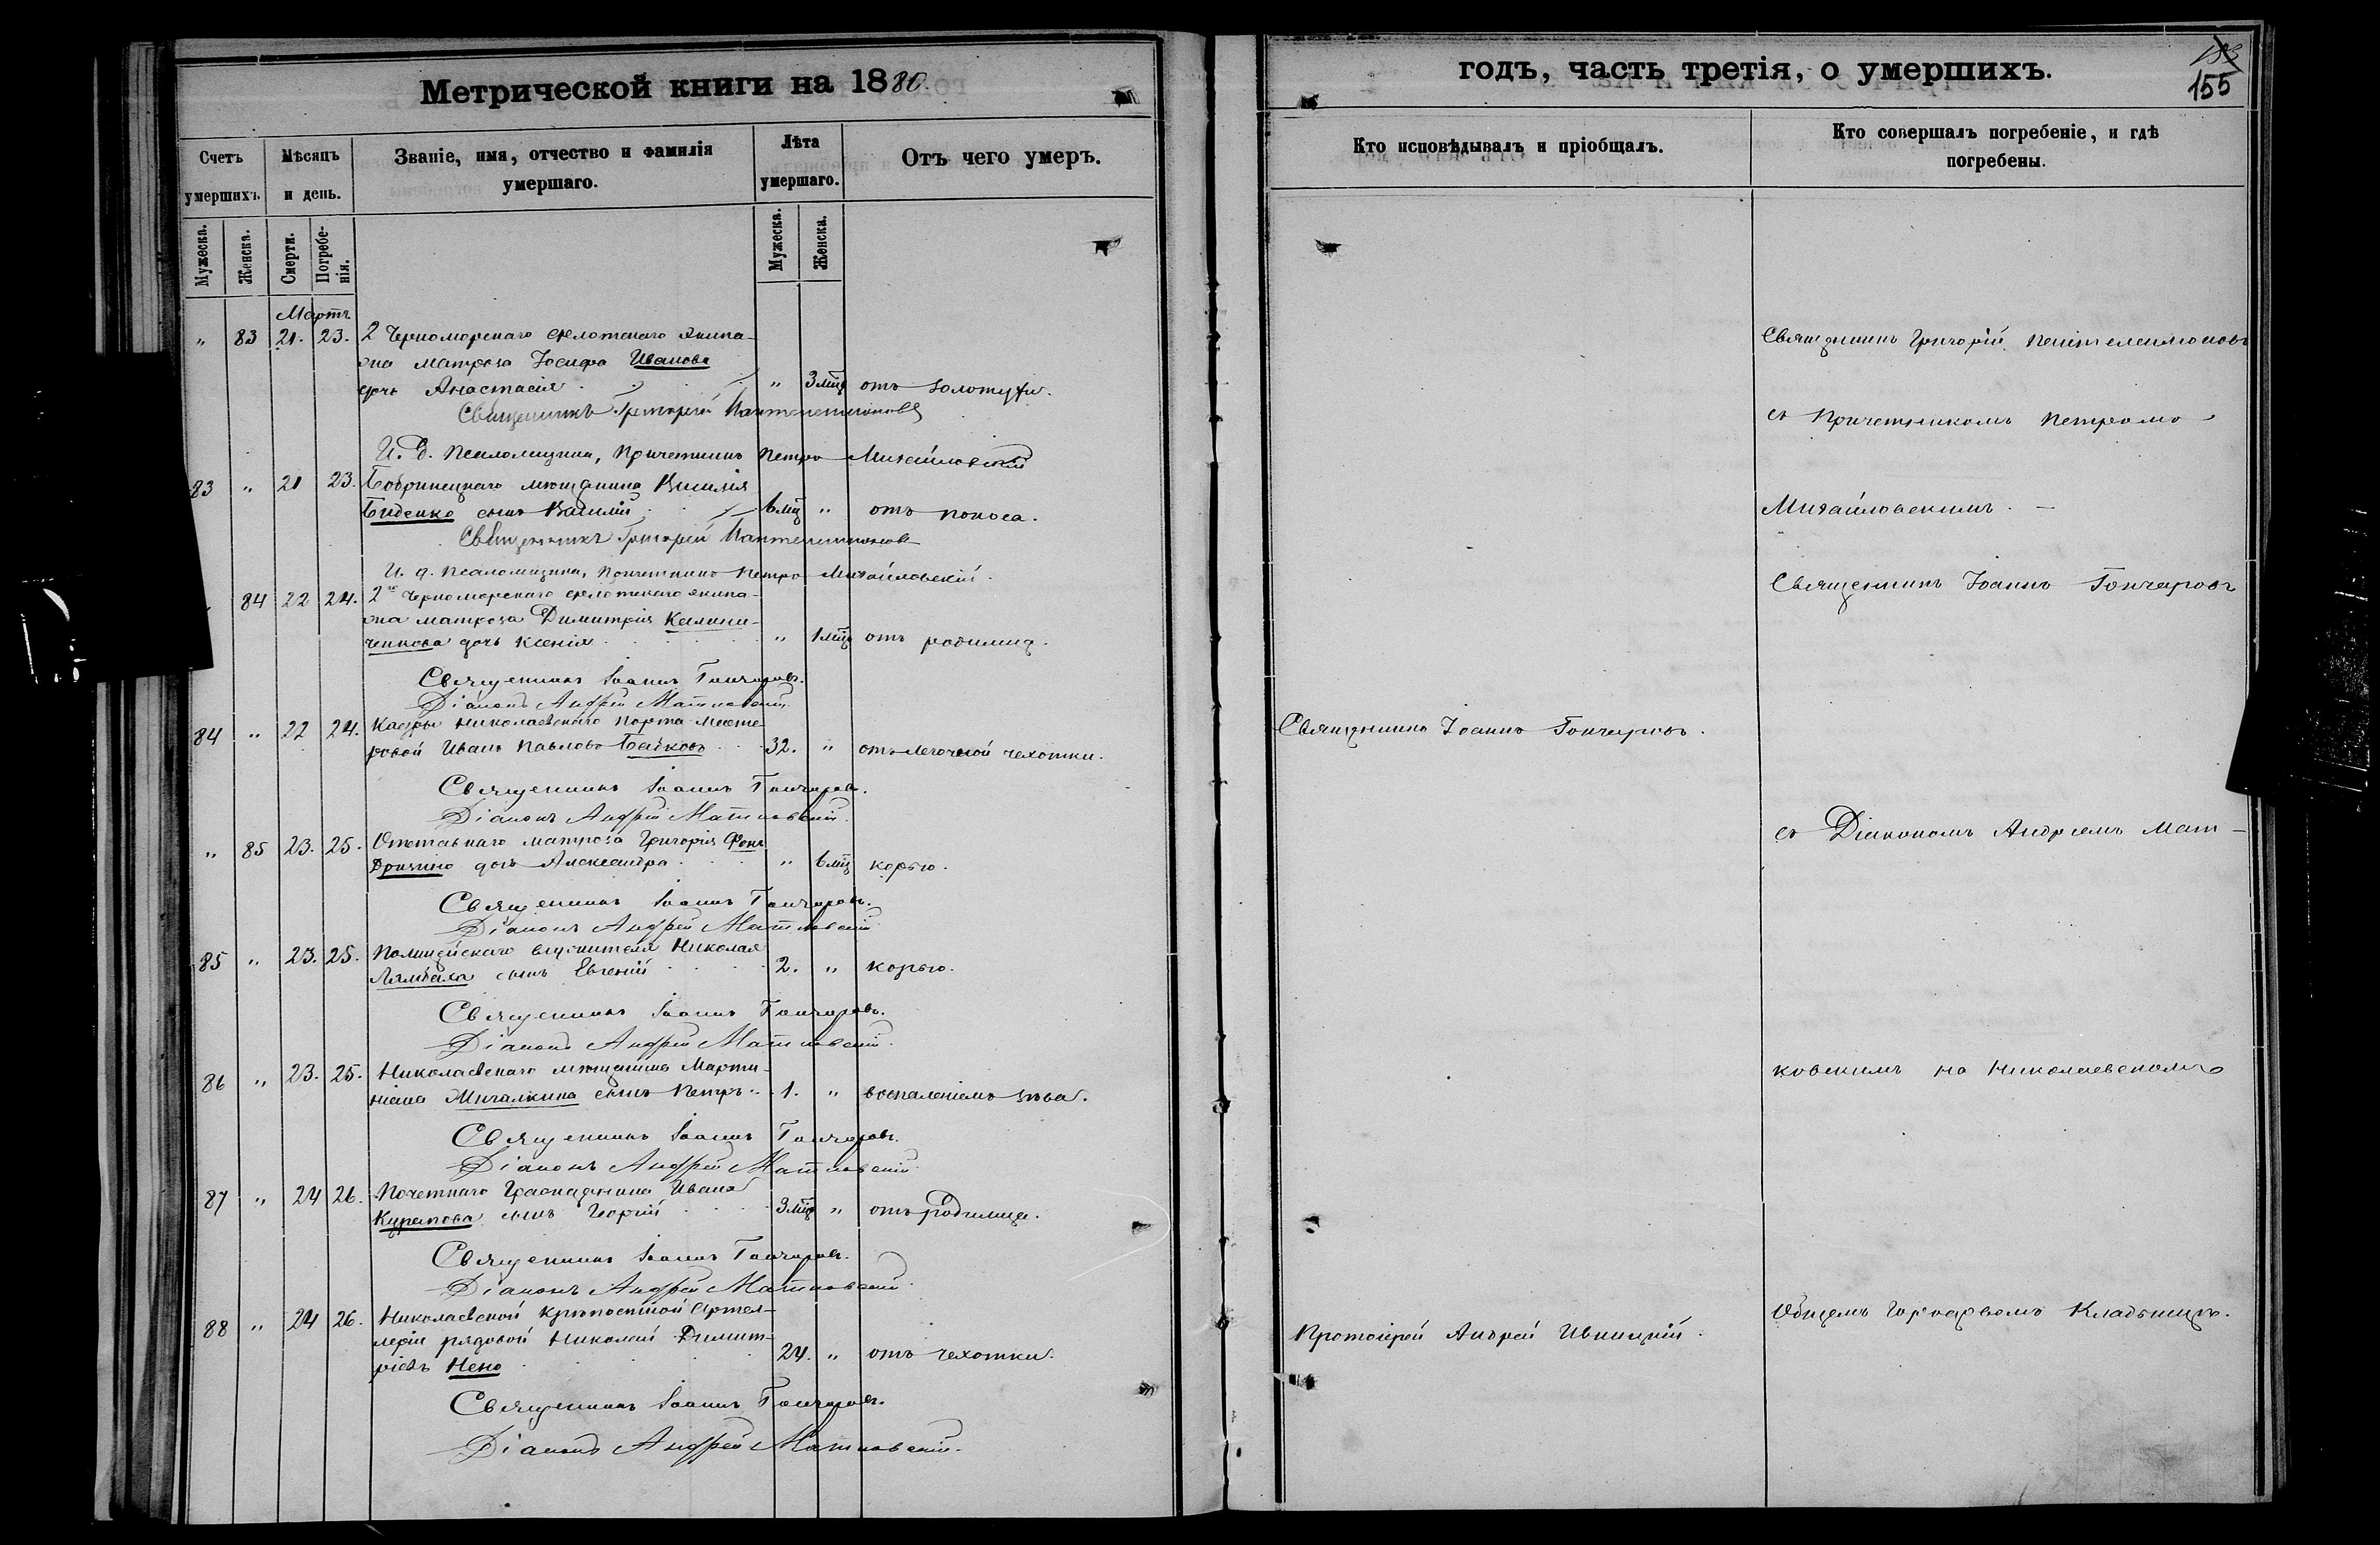 Метрической книги на 1880.
Счетъ умершихъ.
Мѣсяцъ и день.
Званіе, имя, отчество и фамилія умершаго.
Лѣта умершаго.
Отъ чего умеръ.
Мужеска.
Женска.
Смерти.
Погребе-
нія.
Мужеска.
Женска.
Мартъ
" 83 21. 23. 2 Черноморскаго флотскаго экипа-
жа матроса Іосифа Иванова
дочь Анастасія " 3 мцъ отъ золотухи.
Священникъ Григорій Пантелеимоновъ
И. д. Псаломщика, Причетникъ Петръ Михайловскій
83 " 21 23. Бобринецкаго мѣщанина Василія
Биденко сынъ Василій 6 мцъ " отъ поноса.
Священникъ Григорій Пантелеимоновъ
И. д. Псаломщика, Причетникъ Петръ Михайловскій.
84 22 24. 2го Черноморскаго флотскаго экипа-
жа матроса Димитрія Калини-
ченкова дочь Ксенія " 1 мцъ отъ родимца.
Священникъ Іоаннъ Гончаровъ.
Діаконъ Андрей Матковскій.
84 " 22 24. Кадры Николаевскаго порта масте-
ровой Иванъ Павловъ Байковъ 32. " отъ легочной чахотки.
Священникъ Іоаннъ Гончаровъ.
Діаконъ Андрей Матковскій.
" 85 23. 25. Отставнаго матроса Григорія
дочь Александра " 6 мцъ корью.
Священникъ Іоаннъ Гончаровъ.
Діаконъ Андрей Матковскій
85 " 23. 25. Полицейскаго служителя Николая
сынъ Евгеній 2. " корью.
Священникъ Іоаннъ Гончаровъ.
Діаконъ Андрей Матковскій.
86 " 23. 25. Николаевскаго мѣщанина Марти-
ніана Мигалкина сынъ Петръ 1. " воспаленіемъ зѣва.
Священникъ Іоаннъ Гончаровъ.
Діаконъ Андрей Матковскій
87 " 24 26. Почетнаго Гражданина Ивана
Курапова сынъ Георгій 3 мцъ " отъ родимца.
Священникъ Іоаннъ Гончаровъ.
Діаконъ Андрей Матковскій.
88 " 24 26. Николаевской крѣпостной Артил-
леріи рядовой Николай Димит-
ріевъ Нено 24. " отъ чахотки.
Священникъ Іоаннъ Гончаровъ.
Діаконъ Андрей Матковскій.
годъ, часть третія, о умершихъ.
183
155
Кто исповѣдывалъ и пріобщалъ.
Кто совершалъ погребеніе, и гдѣ
погребены.
Священникъ Григорій Пантелеимоновъ
съ Причетникомъ Петромъ
Михайловскимъ. –
Священникъ Іоаннъ Гончаровъ
Священникъ Іоаннъ Гончаровъ.
съ Діакономъ Андреемъ Мат-
ковскимъ на Николаевскомъ
Общемъ Городскомъ Кладбищѣ.
Протоіерей Андрей Ивницкій.